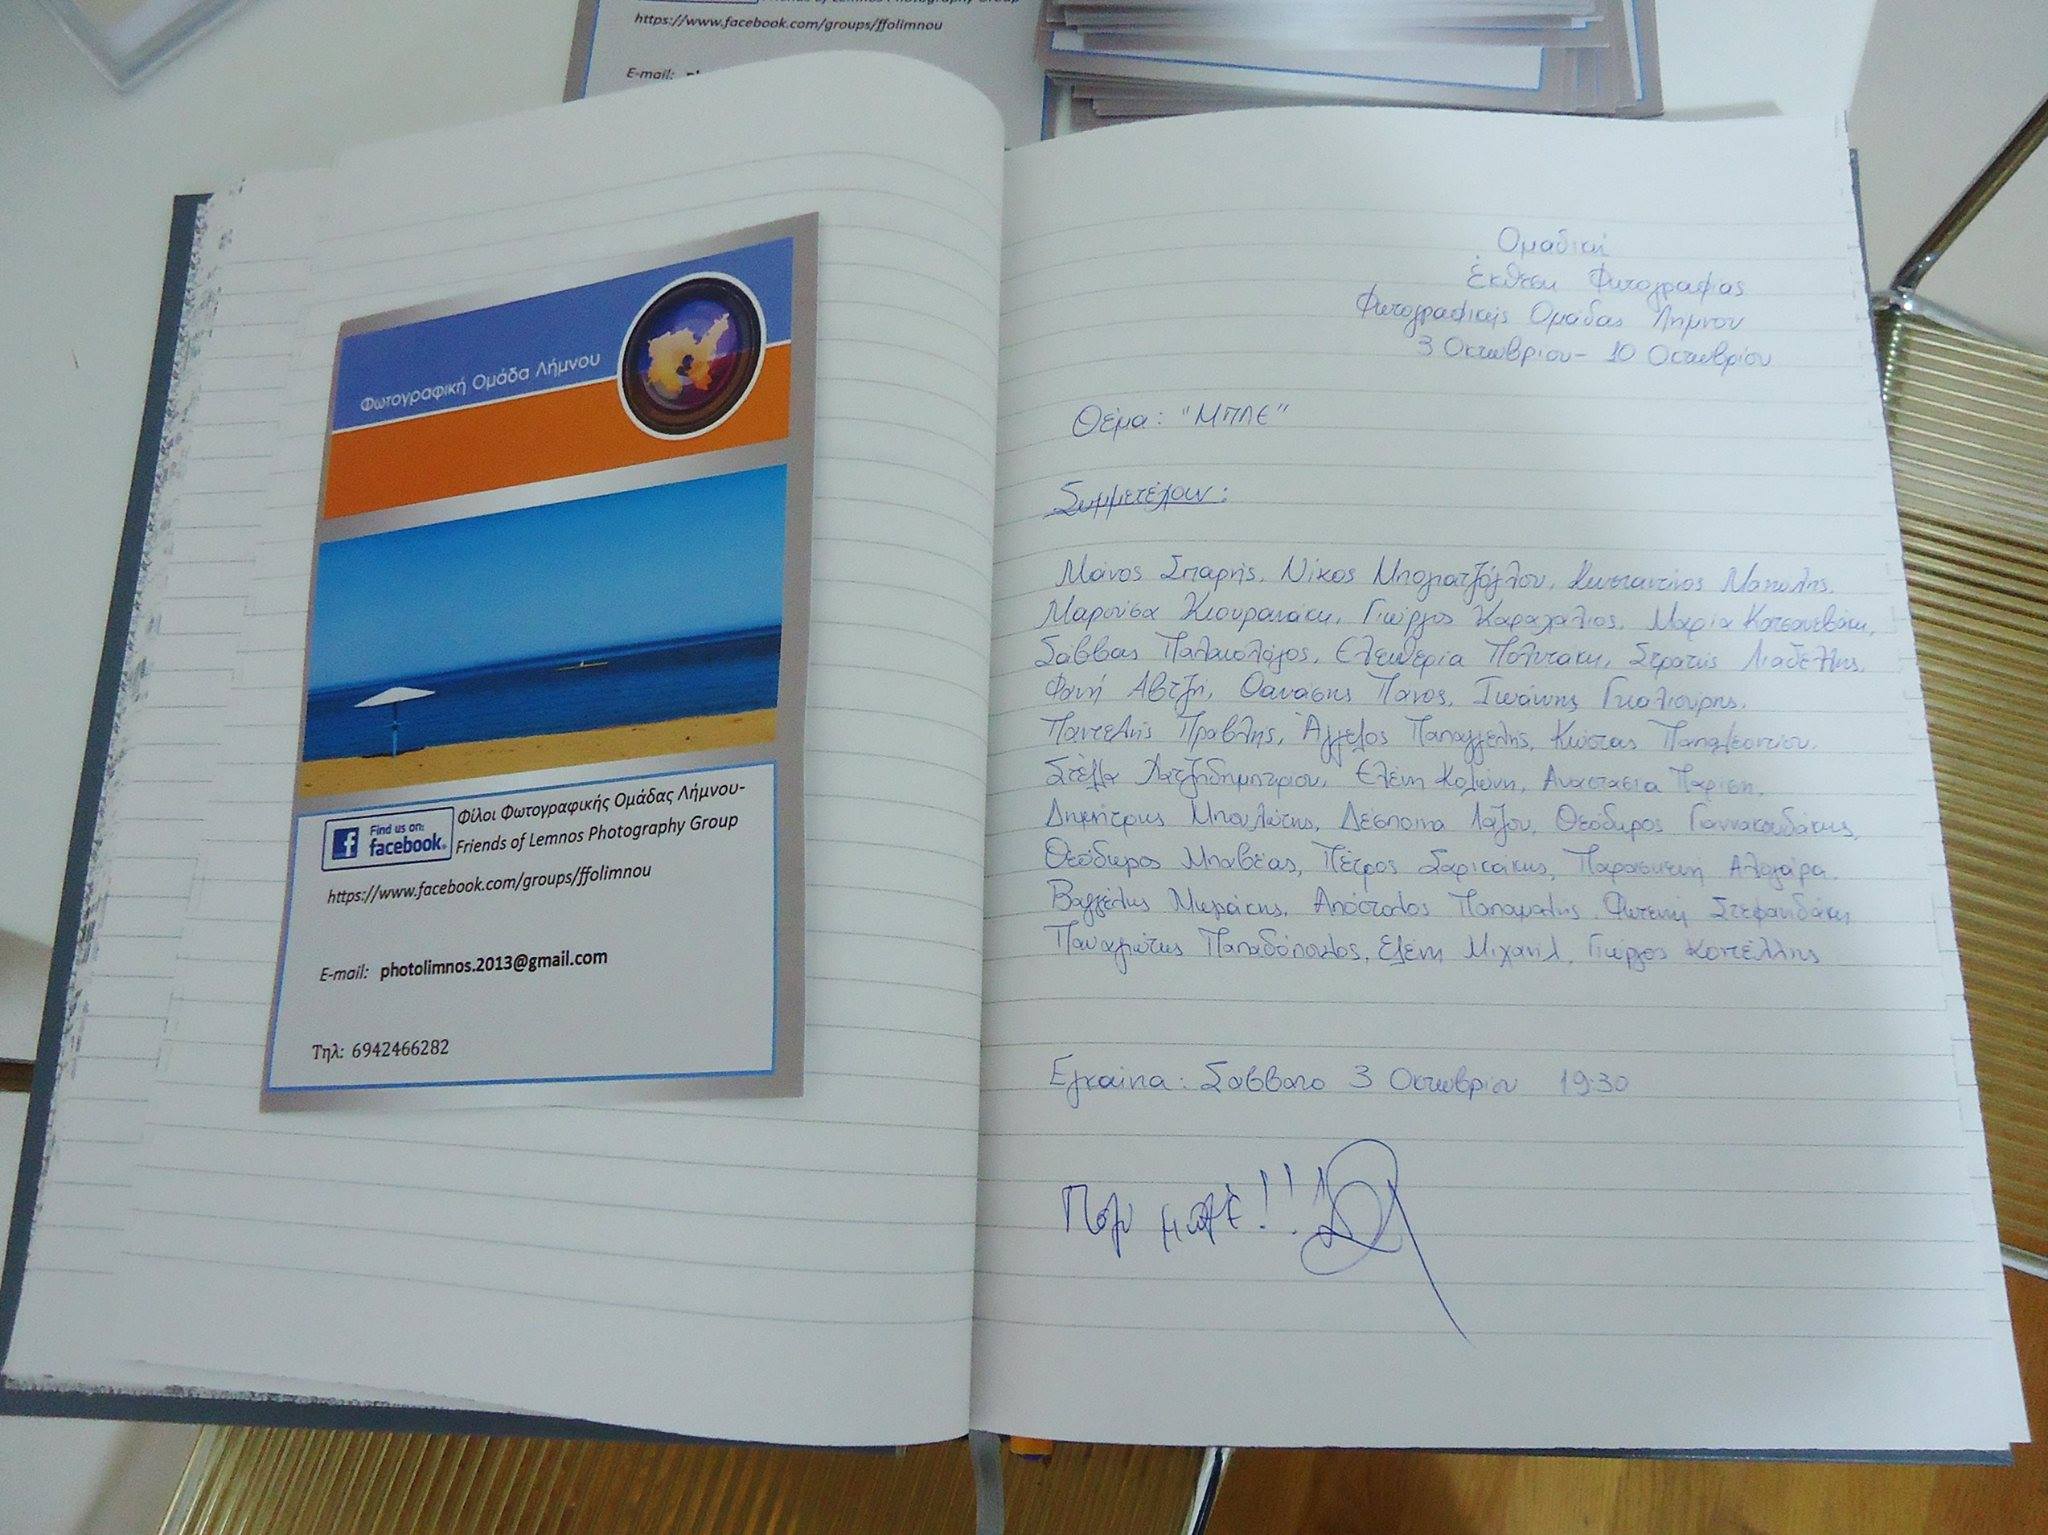 https://www.facebook.com/groups/ffolimnou
E-mail:
Φωτογραφική Ομάδα Λήμνου
Find us on:
facebook.
Φίλοι Φωτογραφικής Ομάδας Λήμνου-
Friends of Lemnos Photography Group
https://www.facebook.com/groups/ffolimnou
E-mail: photolimnos.2013@gmail.com
Τηλ: 6942466282
Ομαδική
Έκθεση Φωτογραφίας
Φωτογραφικής Ομάδας Λήμνου
3 Οκτωβρίου - 10 Οκτωβρίου
Θέμα: "ΜΠΛΕ"
Συμμετέχουν:
Μάνος Σπαρής, Νίκος Μπογιατζόγλου, Κωνσταντίνος
Μαρούσα Κιουρανάκη, Γιώργος Καραχάλιος, Μαρία Κατσανεβάκη,
Σάββας Παλαιολόγος, Ελευθερία Πολυτάκη, Στρατής Λιαδέλλης,
Φανή Αβτζή, Θανάσης Πάνος, Ιωάννης
Παντελής Πραβλής, Άγγελος Παπαγγελής, Κώστας Παπαλεοντίου,
Στέλλα Χατζηδημητρίου, Ελένη Κολώνη, Αναστασία Παρίση,
Δημήτρης Μπουλώτης, Δέσποινα Λάζου, Θεόδωρος Γιαννακουδάκης,
Θεόδωρος Μπαβέας, Πέτρος Σαρικάκης, Παρασκευή Αλογάρα,
Βαγγέλης Μωράκης, Απόστολος Παπαμαλής, Φωτεινή Στεφανιδάκη,
Παναγιώτης Παπαδόπουλος, Ελένη Μιχαήλ, Γιώργος Κοντέλλης
Εγκαίνια: Σάββατο 3 Οκτωβρίου 19:30
Πολύ μπλέ!!